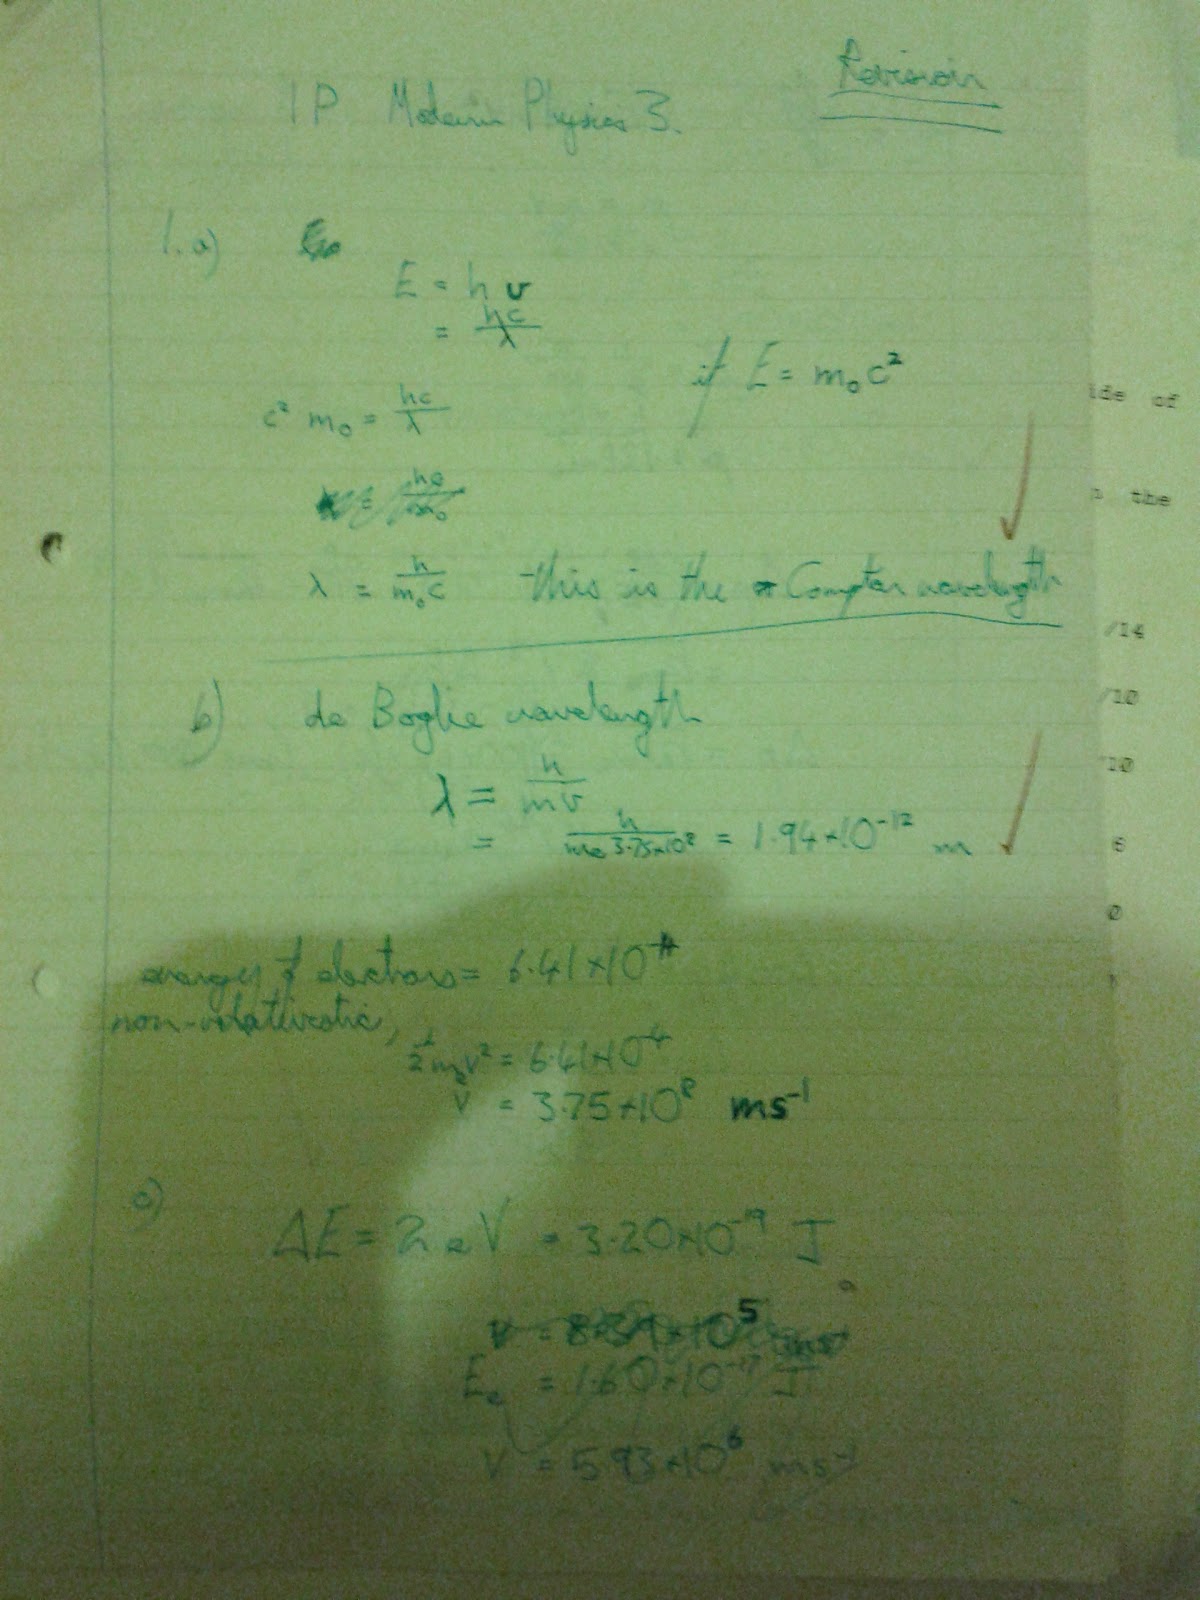 Revision
1P Modern Physics 3.
1. a)
E = hν
= hc/λ
if E = m₀c²
c² m₀ = hc/λ
λ = h/m₀c this is the Compton wavelength
b) de Boglie wavelength
λ = h/mv
= h/mₑ 3.75×10⁸ = 1.94×10⁻¹² m
energy of electrons = 6.41×10
non-relativistic,
½mₑv² = 6.41×10
v = 3.75×10⁸ ms⁻¹
c)
ΔE = 2 eV = 3.20×10⁻¹⁹ J
Eₑ = 1.60×10⁻¹⁷ J
v = 5.93×10⁶ ms⁻¹
ide of
the
/14
/10
/10